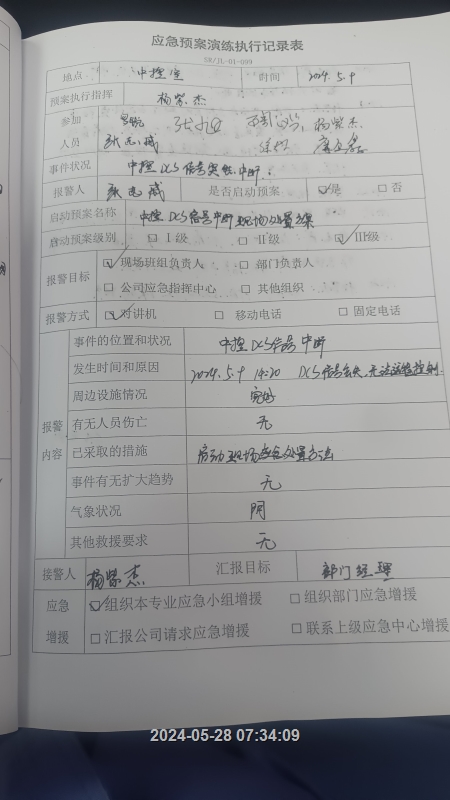 应急预案演练执行记录表
SR/JL-01-009
地点 中控室 时间 2024.5.9
预案执行指挥 杨荣杰
参加 杨荣杰.
人员 张志斌
事件状况 中控DCS信号突然中断.
报警人 张志斌 是否启动预案 ☑是 □否
启动预案名称 中控DCS信号中断现场处置方案
启动预案级别 □Ⅰ级 □Ⅱ级 ☑Ⅲ级
报警目标 ☑现场班组负责人 □部门负责人
□公司应急指挥中心 □其他组织
报警方式 ☑对讲机 □移动电话 □固定电话
报警内容
事件的位置和状况 中控DCS信号中断
发生时间和原因 2024.5.9 14:20 DCS信号丢失,无法远程控制.
周边设施情况 完好
有无人员伤亡 无
已采取的措施 启动现场应急处置方法
事件有无扩大趋势 无
气象状况 阴
其他救援要求 无
接警人 杨荣杰 汇报目标 部门经理
应急增援 ☑组织本专业应急小组增援 □组织部门应急增援
□汇报公司请求应急增援 □联系上级应急中心增援
2024-05-28 07:34:09